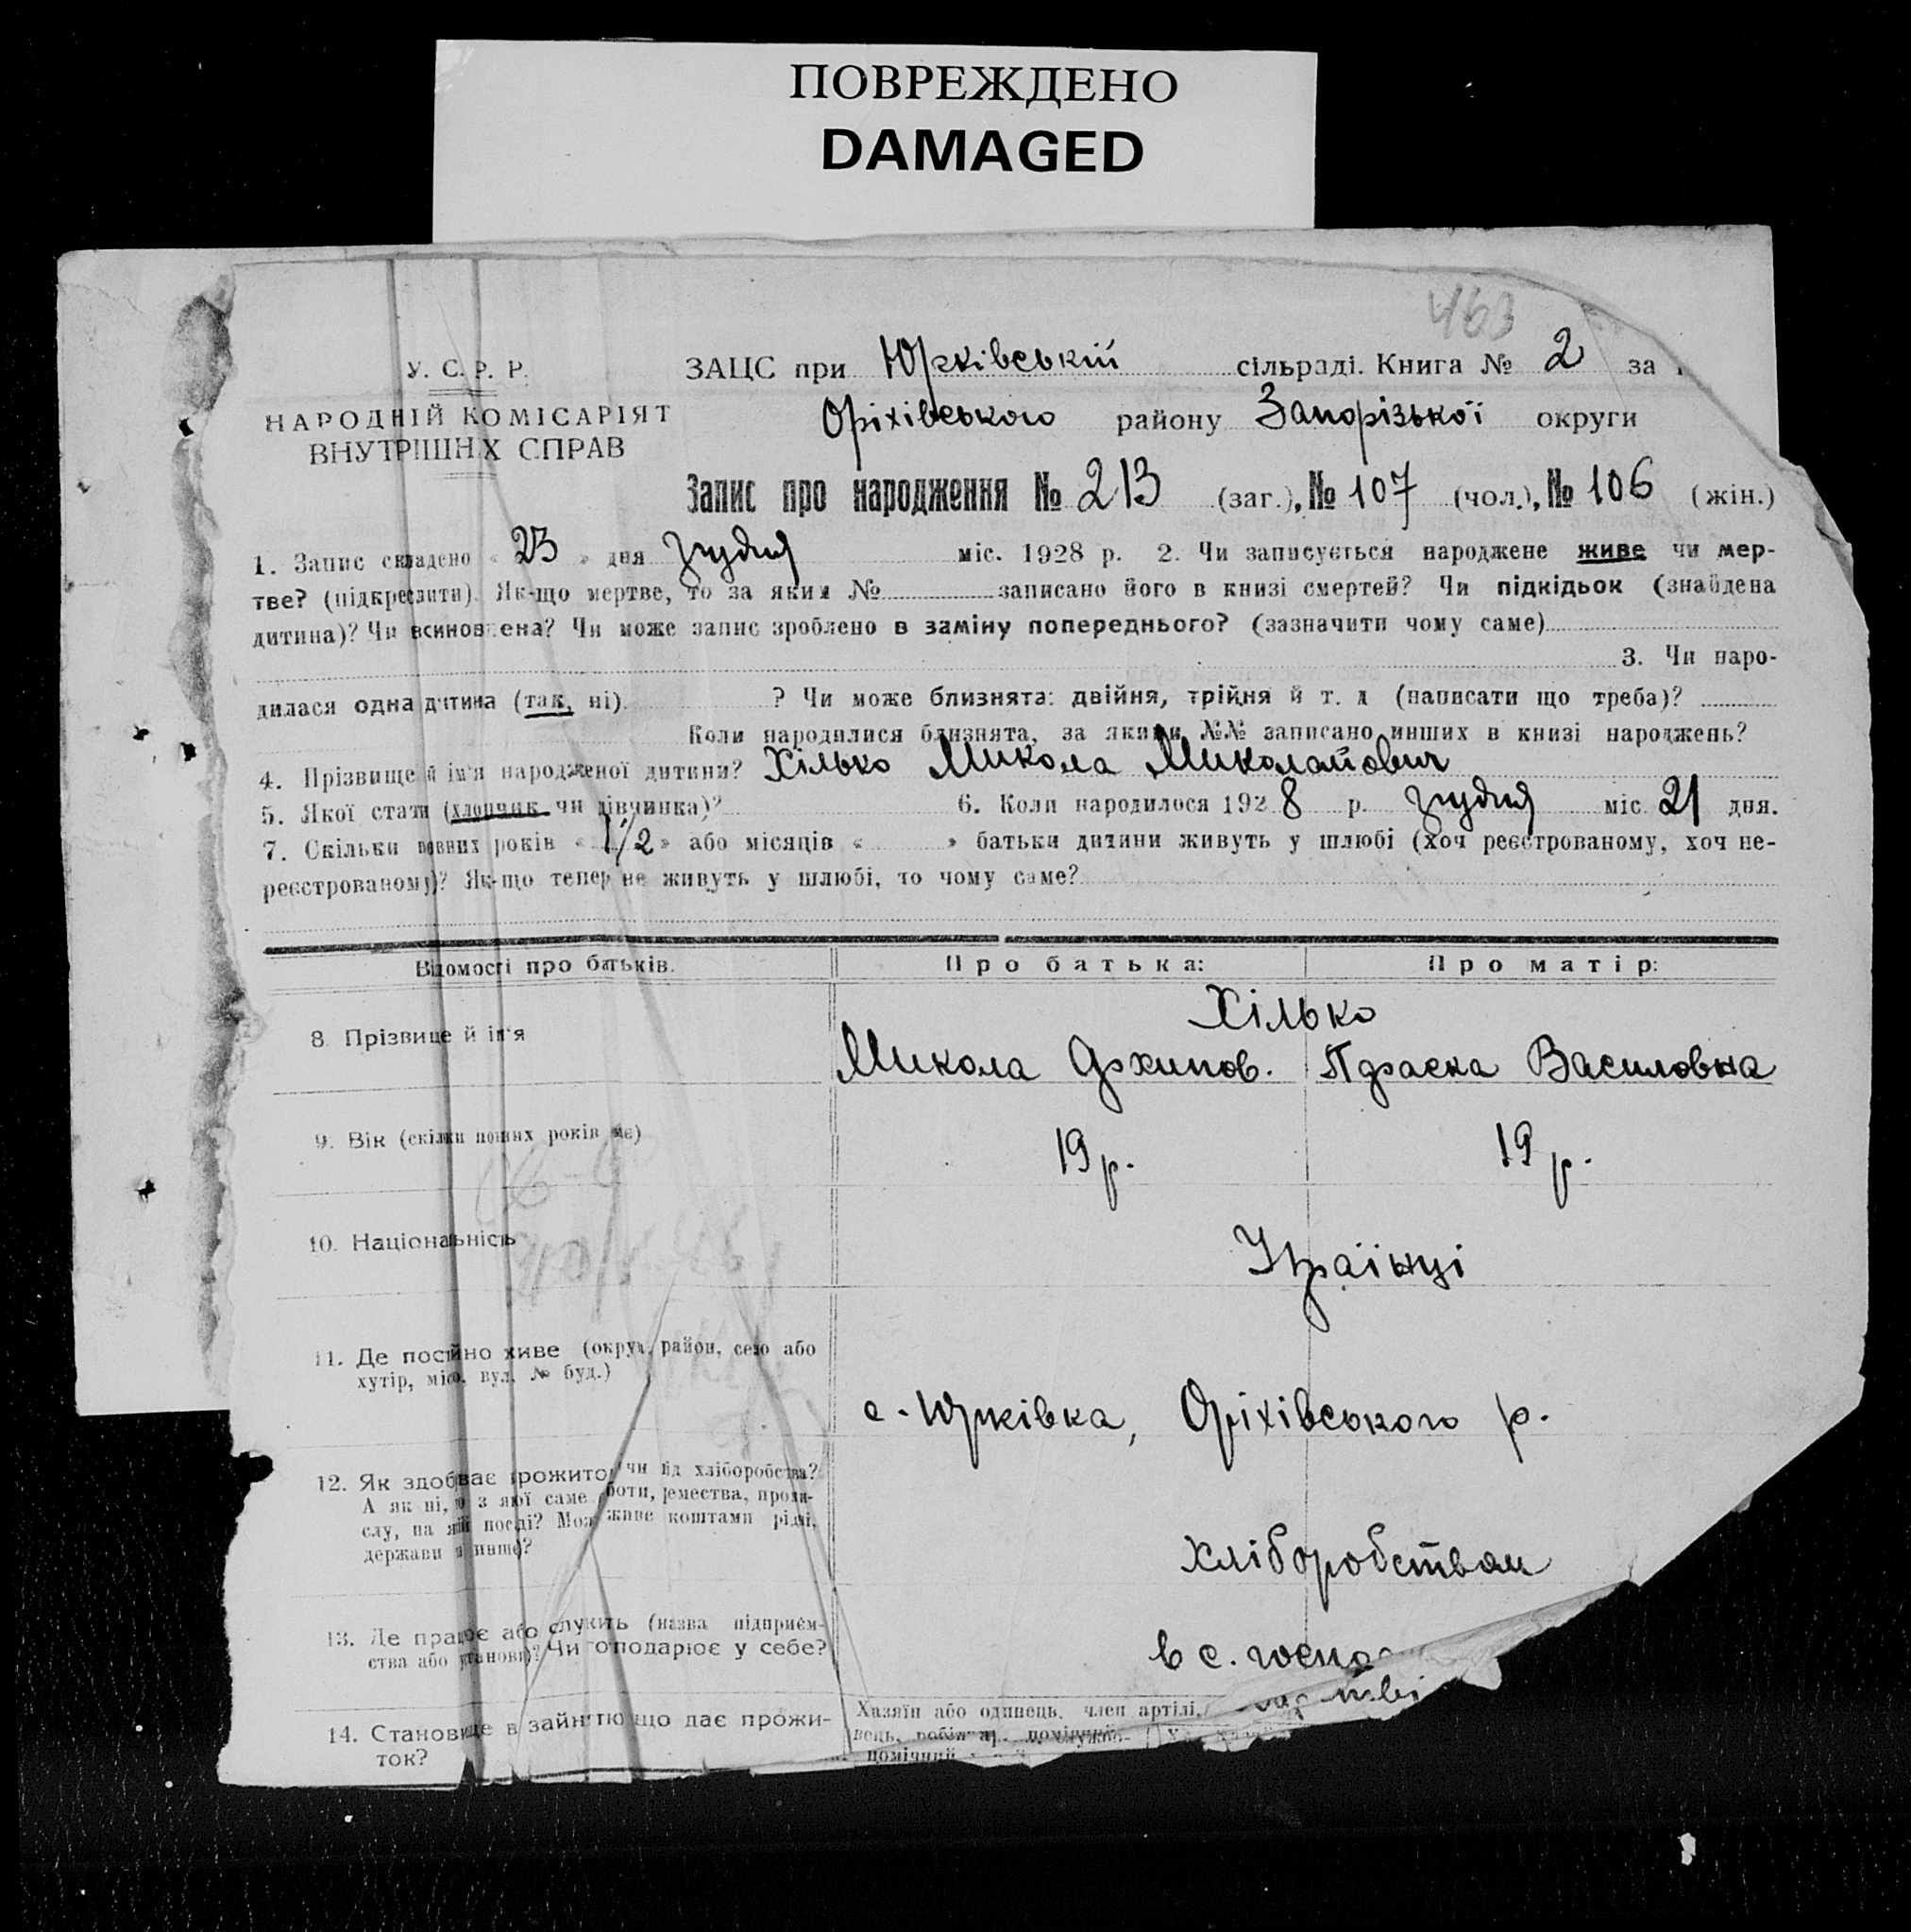 ПОВРЕЖДЕНО
DAMAGED
463
У. С. Р. Р.
НАРОДНІЙ КОМІСАРІЯТ
ВНУТРІШНІХ СПРАВ
ЗАЦС при Юрківській сільраді. Книга № 2 за
Оріхівського району Запорізької округи
Запис про народження № 213 (заг.), № 107 (чол.), № 106 (жін.)
1. Запис складено « 23 » дня грудня міс. 1928 р. 2. Чи записується народжене живе чи мер-
тве? (підкреслити). Як-що мертве, то за яким № записано його в книзі смертей? Чи підкідьок (знайдена
дитина)? Чи всиновлена? Чи може запис зроблено в заміну попереднього? (зазначити чому саме)
3. Чи наро-
дилася одна дитина (так, ні) ? Чи може близнята: двійня, трійня й т. д (написати що треба)?
Коли народилися близнята, за якими №№ записано инших в книзі народжень?
4. Прізвище й ім'я народженої дитини? Хілько Микола Миколайович
5. Якої стати (хлопчик чи дівчинка)? 6. Коли народилося 1928 р. грудня міс 21 дня.
7. Скільки повних років « 1 1/2 » або місяців « » батьки дитини живуть у шлюбі (хоч реєстрованому, хоч не-
реєстрованому)? Як-що тепер не живуть у шлюбі, то чому саме?
Відомості про батьків. Про батька: Про матір:
Хілько
8. Прізвище й ім'я Микола Архипов. Параска Василовна
9. Вік (скільки повних років має) 19 р. 19 р.
10. Національність Українці
11. Де постійно живе (округ, район, село або
хутір, місто, вул. № буд.)
с. Юрківка, Оріхівського р.
12. Як здобуває прожиток, чи від хліборобства?
А як ні, то з якої саме роботи, ремества, проми-
слу, на якій посаді? Може живе коштами рідні,
держави й инше?
хліборобством
13. Де працює або служить (назва підприєм-
ства або установи)? Чи господарює у себе?
в с. госпо
14. Становище в зайнятю що дає прожи-
ток?
Хазяїн або одинець, член артілі,